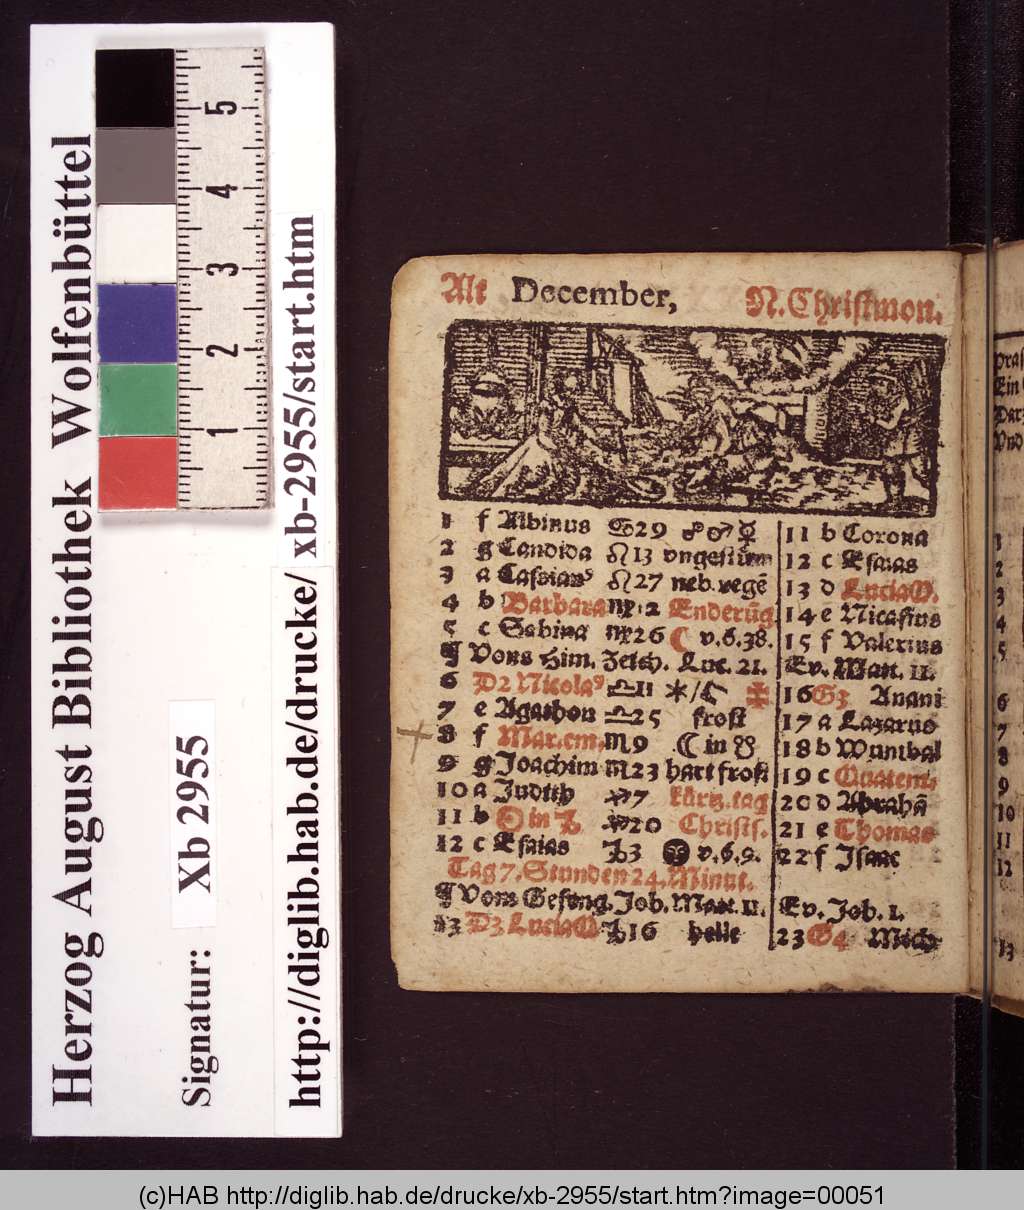 Herzog August Bibliothek Wolfenbüttel
Signatur: Xb 2955
http://diglib.hab.de/drucke/ xb-2955/start.htm
5
4
3
2
1
Alt December, N. Christmon.
1 f Albinus ♋29 ☍♂☿
2 g Candida ♌13 vngestüm
3 a Cassianꝰ ♌27 neb. regē
4 b Barbara ♍12 Enderūg
5 c Sabina ♍26 ☾ v.6.38.
¶ Vons Him. Zeich. Luc. 21.
6 D2 Nicolaꝰ ♎11
7 e Agathon ♎25 frost
8 f Mar.em. ♏9 ☾ in ☋
9 g Joachim ♏23 hart frost
10 a Judith ♐7 kürtz.tag
11 b ☉ in ♑ ♐20 Christs.
12 c Esaias ♑3 v.6.9.
Tag 7. Stunden 24. Minut.
¶ Vom Gefeng. Joh. Matt. 11.
13 D3 Lucia ♑16 helle
11 b Corona
12 c Esaias
13 d Lucia
14 e Nicasius
15 f Valerius
Ev. Matt. 11.
16 G3 Anani
17 a Lazarus
18 b Wunibal
19 c Quatem.
20 d Abrahā
21 e Thomas
22 f Isaac
Ev. Joh. 1.
23 G4 Mich
1
2
3
4
5
6
7
8
9
10
11
12
13
Ein
Vnd
(c)HAB http://diglib.hab.de/drucke/xb-2955/start.htm?image=00051